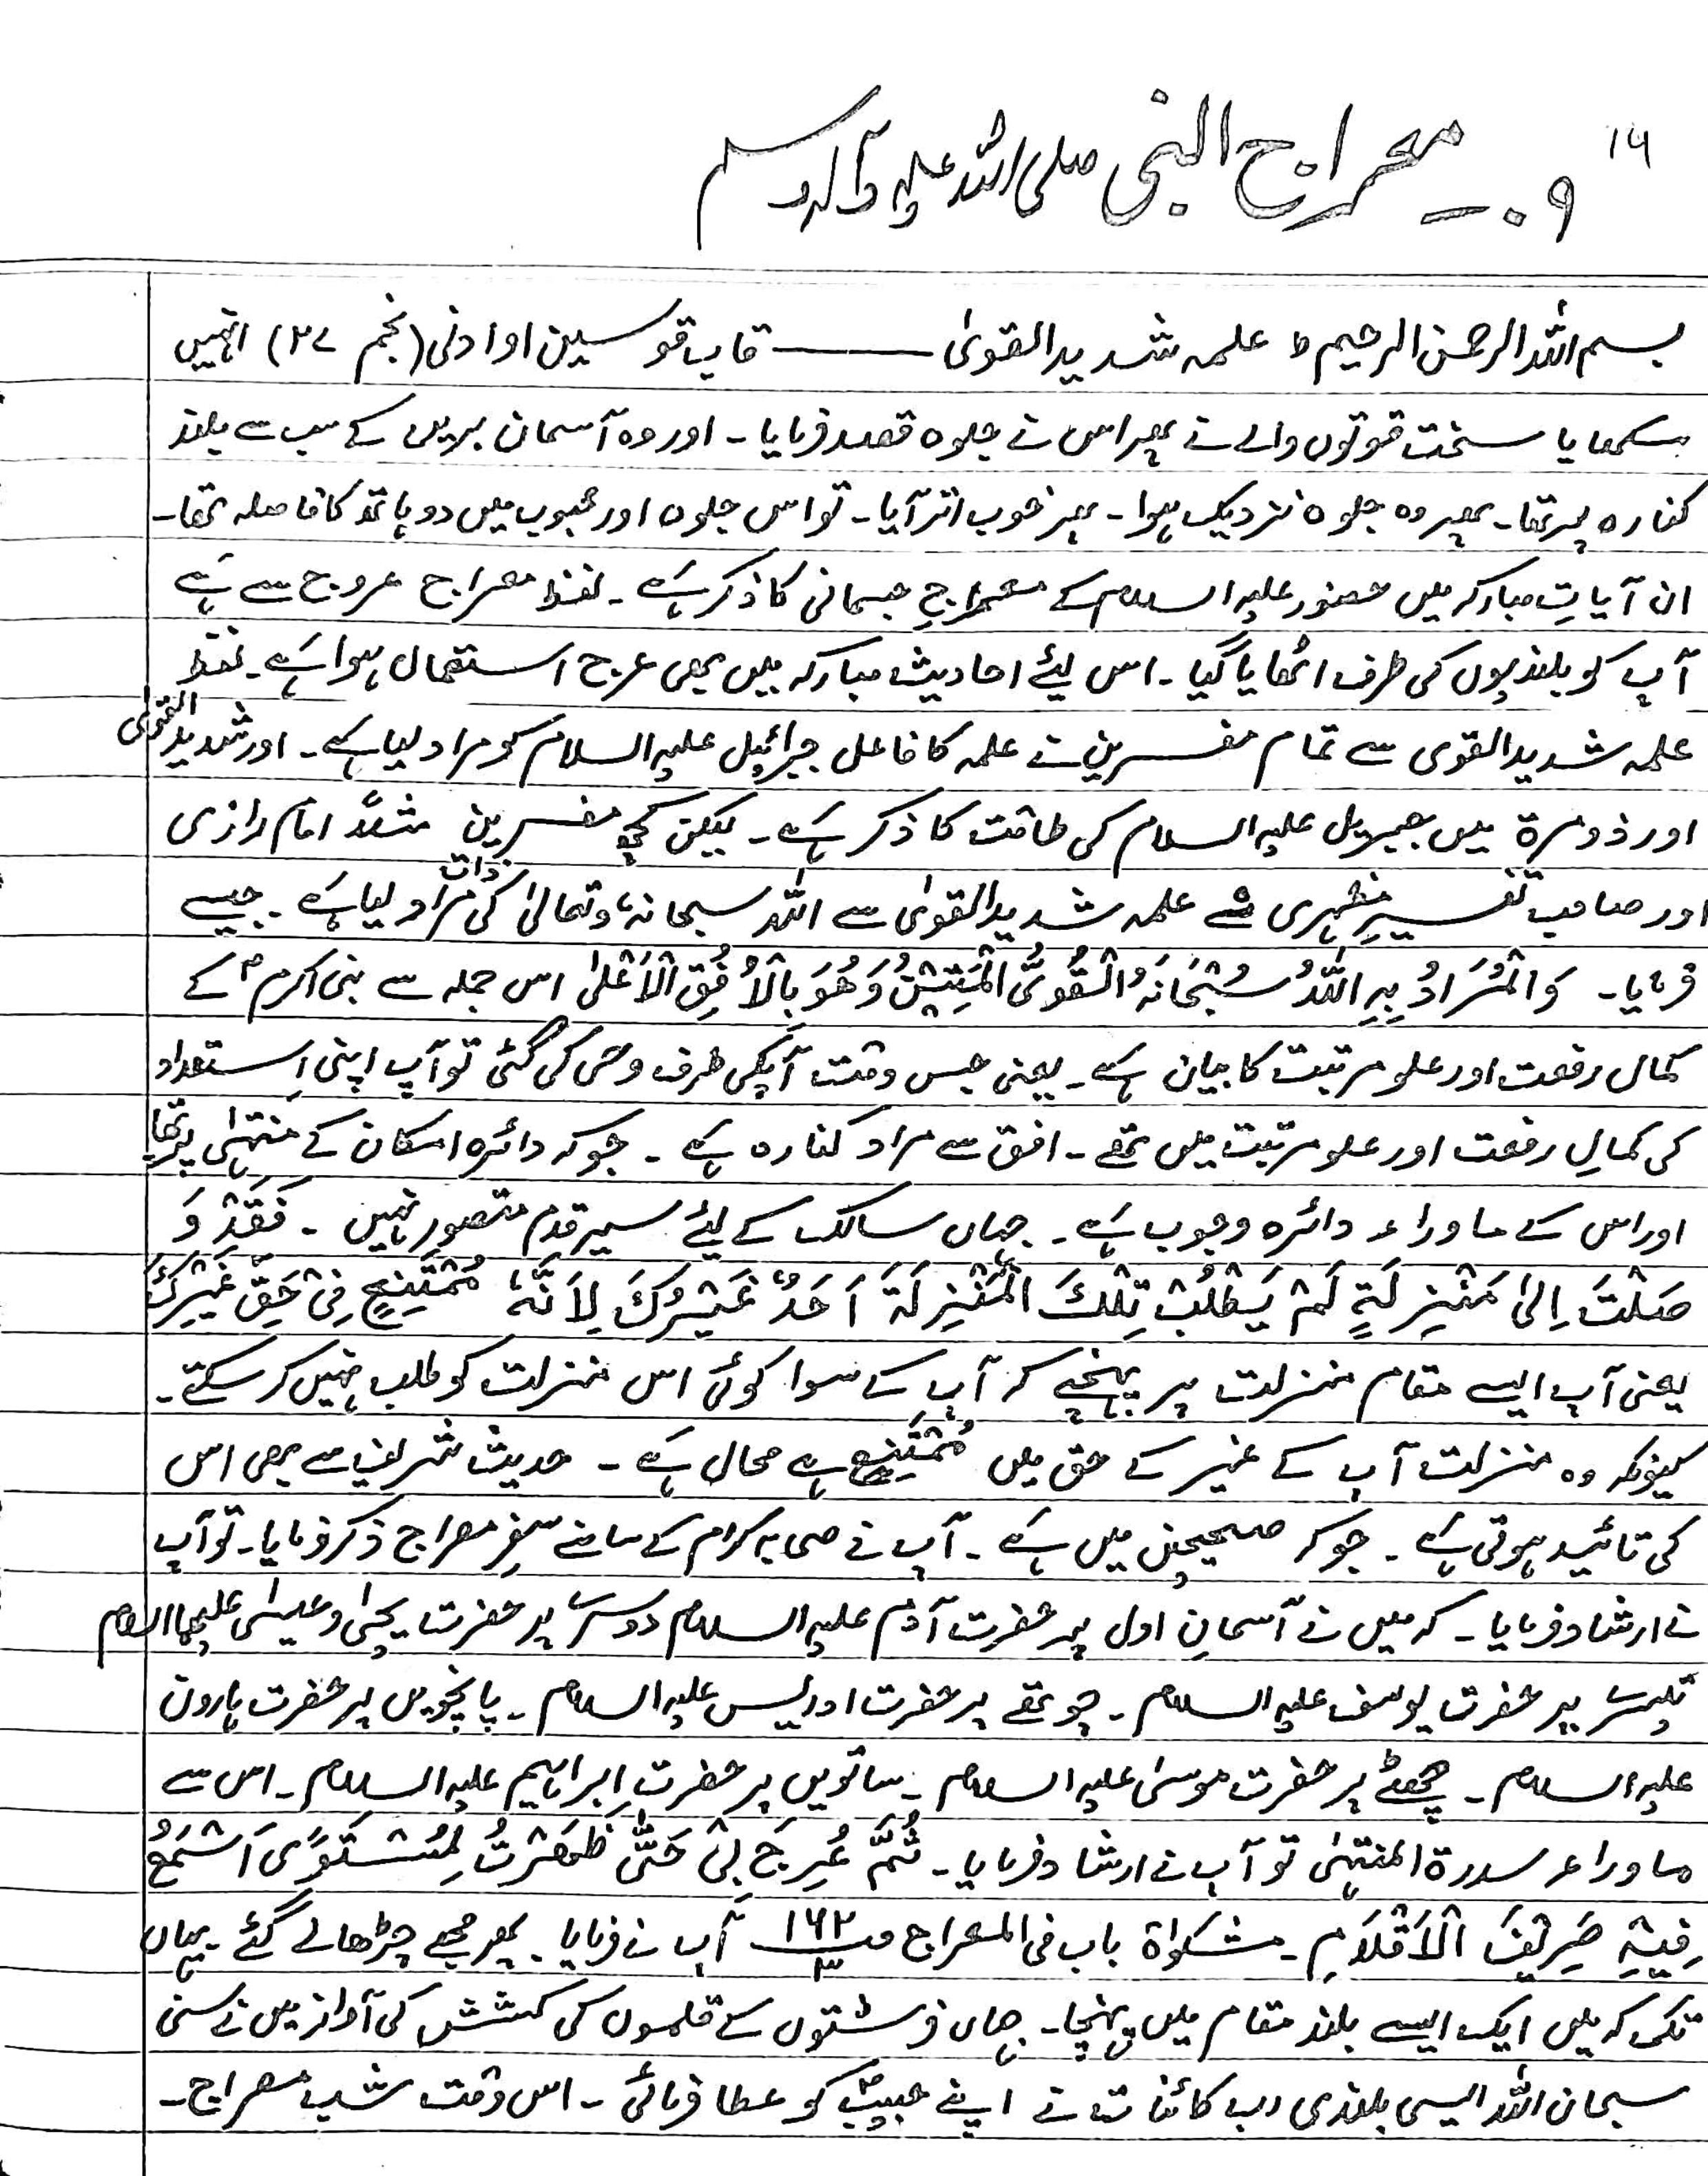 ۱۶
۹ ۔ معراج النبی صلی اللہ علیہ وآلہ وسلم
بسم اللہ الرحمن الرحیم ط علمہ شدیدالقویٰ ——— قاب قوسین اوادنی (نجم ۲۷) انہیں
سکھایا سخت قوتوں والے نے پھر اس نے جلوہ قصد فرمایا ۔ اور وہ آسمان بریں کے سب سے بلند
کنارہ پر تھا ۔ پھر وہ جلوہ نزدیک ہوا ۔ پھر خوب اتر آیا ۔ تو اس جلوہ اور محبوب میں دو ہاتھ کا فاصلہ تھا ۔
ان آیاتِ مبارکہ میں حضور علیہ السلام کے معراجِ جسمانی کا ذکر ہے ۔ لفظ معراج عروج سے ہے
آپ کو بلندیوں کی طرف اٹھایا گیا ۔ اس لیئے احادیث مبارکہ میں بھی عرج استعمال ہوا ہے ۔ لفظ
علمہ شدیدالقوی سے تمام مفسرین نے علمہ کا فاعل جبرائیل علیہ السلام کو مراد لیا ہے ۔ اور شدید القویٰ
اور ذومرۃ میں جبریل علیہ السلام کی طاقت کا ذکر ہے ۔ لیکن کچھ مفسرین مثلاً امام رازی
اور صاحب تفسیرِ مظہری نے علمہ شدیدالقویٰ سے اللہ سبحانہٗ وتعالیٰ کی ذات مراد لیا ہے ۔ جیسے
فرمایا ۔ وَالْمُرَادُ بِہِ اللّٰہُ سُبْحَانَہُ الْقَوِیُّ الْمَتِیْنُ وَھُوَ بِالْاُفُقِ الْاَعْلیٰ اس جملہ سے نبی اکرم ؐ کے
کمال رفعت اور علو مرتبت کا بیان ہے ۔ یعنی جس وقت آپکی طرف وحی کی گئی تو آپ اپنی استعداد
کی کمالِ رفعت اور علو مرتبت میں تھے ۔ افق سے مراد کنارہ ہے ۔ جو کہ دائرہ امکان کے منتہیٰ پر تھا
اور اس کے ماوراء دائرہ وجوب ہے ۔ جہاں سالک کے لیئے سیر قدم متصور نہیں ۔ فَقَدْ وَ
صَلْتَ اِلیٰ مَنْزِلَۃٍ لَمْ یَطْلُبْ تِلْکَ الْمَنْزِلَۃَ اَحَدٌ غَیْرُکَ لِاَنَّہٗ مُمْتَنِعٌ فِیْ حَقِّ غَیْرِکَ
یعنی آپ ایسے مقام منزلت پر پہنچے کہ آپ کے سوا کوئی اس منزلت کو طلب نہیں کر سکتے ۔
کیونکہ وہ منزلت آپ کے غیر کے حق میں مُمْتَنِع ہے محال ہے ۔ حدیث شریف سے بھی اس
کی تائید ہوتی ہے ۔ جو کہ صحیحین میں ہے ۔ آپ نے صحابہ کرام کے سامنے سفرِ معراج ذکر فرمایا ۔ تو آپ
نے ارشاد فرمایا ۔ کہ میں نے آسمانِ اول پر حضرت آدم علیہ السلام دوسرے پر حضرت یحییٰ و عیسیٰ علیہما السلام
تیسرے پر حضرت یوسف علیہ السلام ۔ چوتھے پر حضرت ادریس علیہ السلام ۔ پانچویں پر حضرت ہارون
علیہ السلام ۔ چھٹے پر حضرت موسیٰ علیہ السلام ۔ ساتویں پر حضرت ابراہیم علیہ السلام ۔ اس سے
ماوراء سدرۃ المنتہیٰ تو آپ نے ارشاد فرمایا ۔ ثُمَّ عُرِجَ بِیْ حَتّٰی ظَھَرْتُ لِمُسْتَوًی اَسْمَعُ
فِیْہِ صَرِیْفَ الْاَقْلَامِ ۔ مشکواۃ باب فی المعراج ص ۱۶۲/۳ آپ نے فرمایا ۔ پھر مجھے چڑھالے گئے ۔ یہاں
تک کہ میں ایک ایسے بلند مقام میں پہنچا ۔ جہاں فرشتوں کے قلموں کی کشش کی آواز میں نے سنی
سبحان اللہ ایسی بلندی رب کائنات نے اپنے حبیبؐ کو عطا فرمائی ۔ اس وقت شب معراج ۔